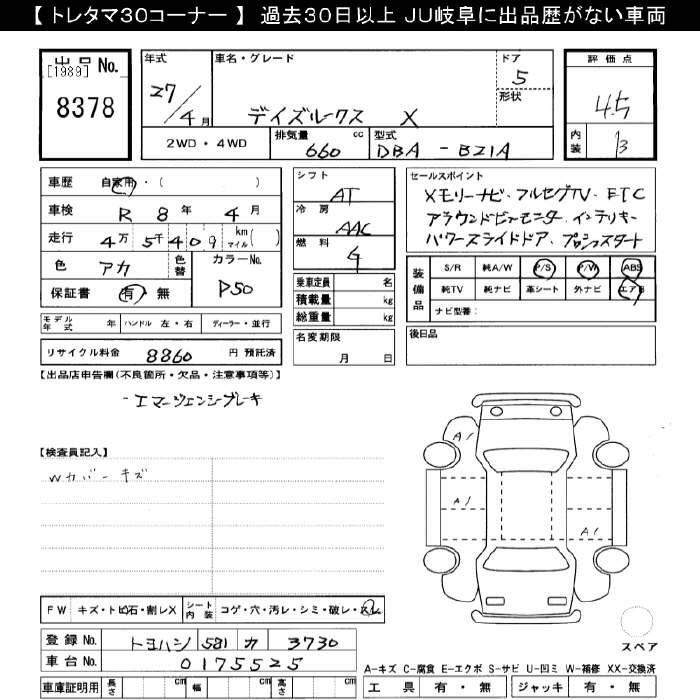 【 トレタマ３０コーナー 】 過去３０日以上 ＪＵ岐阜に出品歴がない車両
出品 No.
[1989]
8378
年式
27／4月
車名・グレード
デイズルークス X
ドア
5
形状
2WD・4WD
排気量
660 cc
型式
DBA - B21A
評価点
4.5
内装
B
車歴 自家用・( )
車検 R 8年 4月
走行 4万 5千409 km マイル ( )
色 アカ
色替
カラーNo.
P50
保証書 有・無
シフト
AT
冷房
AAC
燃料
G
乗車定員 名
積載量 kg
総重量 kg
名変期限
月 日
セールスポイント
メモリーナビ・フルセグTV・ETC
アラウンドビューモニター インテリキー
パワースライドドア、プッシュスタート
装備品
S/R 純A/W P/S P/W ABS
純TV 純ナビ 革シート 外ナビ エアB
ナビ型番：
後日品
モデル年式 年 ハンドル 左・右 ディーラー・並行
リサイクル料金 8860 円 預託済
【出品店申告欄(不良箇所・欠品・注意事項等)】
-エマージェンシーブレーキ
【検査員記入】
Wカバーキズ
A1
A1
A1
FW キズ・トビ石・割レX
シート内装 コゲ・穴・汚レ・シミ・破レ・スレ
登録 No. トヨハシ 581 カ 3730
車台 No. 0175525
車庫証明用 長さ cm 幅 cm 高さ cm
スペア
A－キズ C－腐食 E－エクボ S－サビ U－凹ミ W－補修 XX－交換済
工具 有・無 ジャッキ 有・無